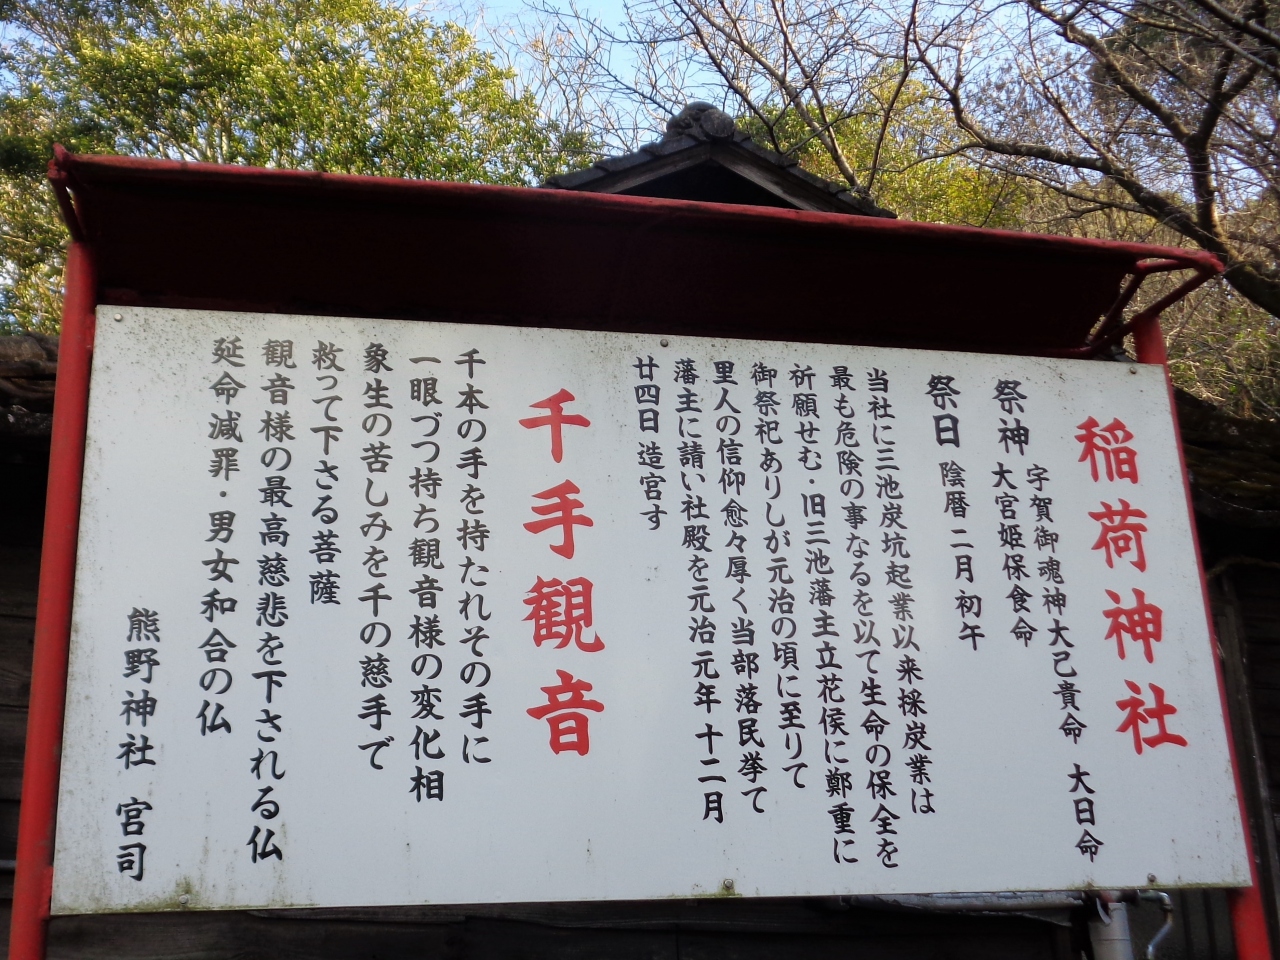 稲荷神社
祭神 宇賀御魂神大己貴命 大日命
大宮姫保食命
祭日 陰暦 二月 初午
当社に三池炭坑起業以来採炭業は
最も危険の事なるを以て生命の保全を
祈願せむ・旧三池藩主立花侯に鄭重に
御祭祀ありしが元治の頃に至りて
里人の信仰愈々厚く当部落民挙て
藩主に請い社殿を元治元年十二月
廿四日 造宮す
千手観音
千本の手を持たれその手に
一眼づつ持ち観音様の変化相
象生の苦しみを千の慈手で
救って下さる菩薩
観音様の最高慈悲を下される仏
延命減罪・男女和合の仏
熊野神社 宮司